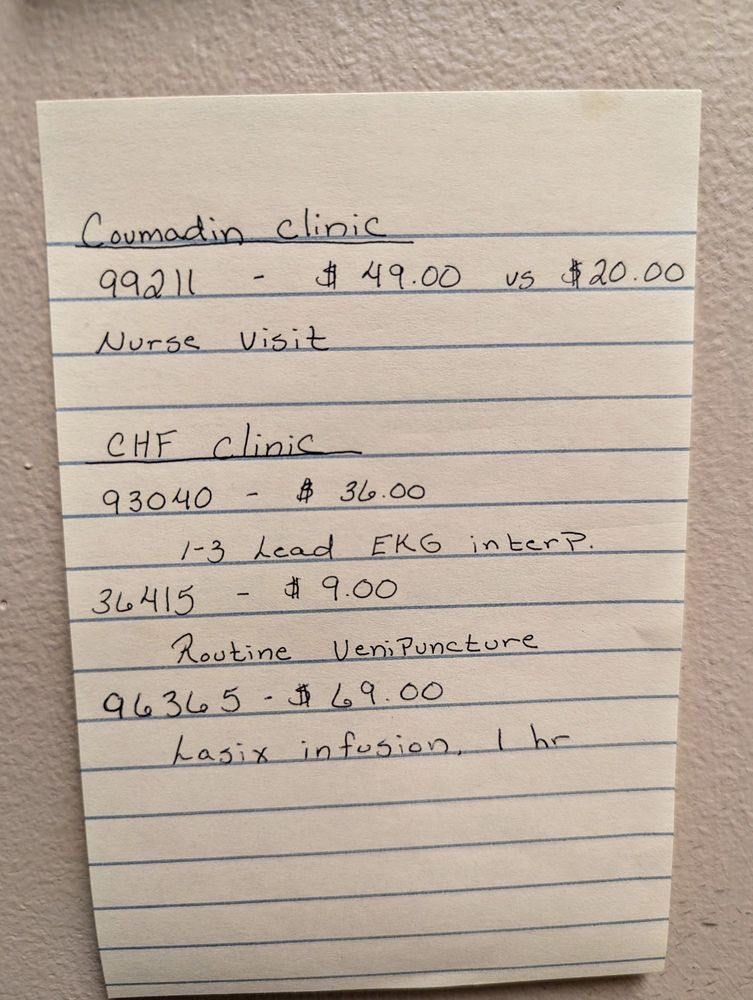 Coumadin clinic
99211 - $ 49.00 vs $20.00
Nurse Visit
CHF clinic
93040 - $ 36.00
1-3 Lead EKG interp.
36415 - $ 9.00
Routine VeniPuncture
96365 - $ 69.00
Lasix infusion, 1 hr